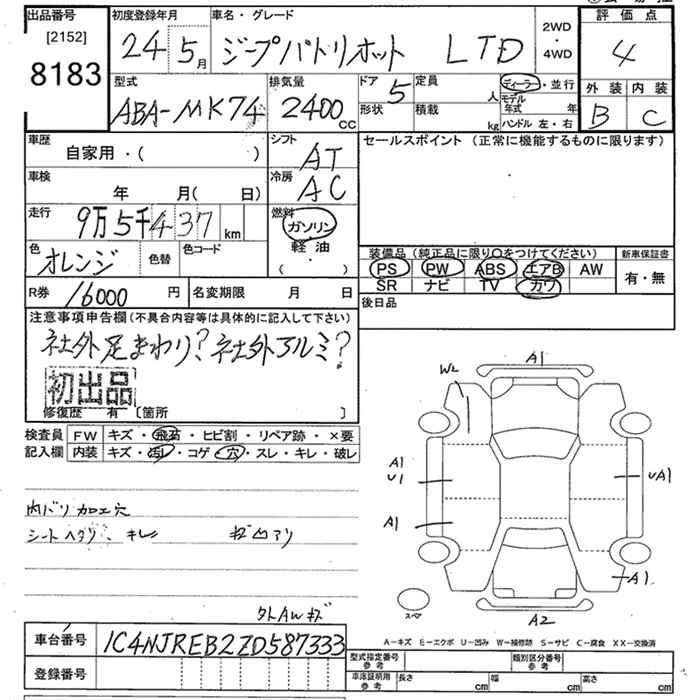 出品番号 初度登録年月 車名・グレード 評価点
[2152]
8183
24 5月 ジープパトリオット LTD 2WD・4WD 4
型式 排気量 ドア 定員 ディーラー・並行 外装 内装
ABA-MK74 2400cc 5 人 モデル年式 年 B C
形状 積載 kg ハンドル 左・右
車歴 シフト セールスポイント (正常に機能するものに限ります)
自家用・( ) AT
車検 冷房
年 月( 日) AC
走行 燃料
9万5千437km ガソリン
軽油
( ・ )
色 色替 色コード
オレンジ
装備品 (純正品に限り○をつけてください) 新車保証書
PS PW ABS エアB AW 有・無
SR ナビ TV カワ
R券 16000円 名変期限 月 日
後日品
注意事項申告欄(不具合内容等は具体的に記入して下さい)
社外足まわり?社外アルミ?
初出品
修復歴 有 [箇所 ]
検査員 FW キズ・飛石・ヒビ割・リペア跡・×要
記入欄 内装 キズ・汚レ・コゲ・穴・スレ・キレ・破レ
A1
W2
A1
U1
UA1
A1
A1
A2
スペア
内バリ加工穴
シートヘタリ、キレ キズ凹アリ
外AWキズ
A-キズ E-エクボ U-凹み W-補修跡 S-サビ C-腐食 XX-交換済
車台番号 1C4NJREB2ZD587333
登録番号
型式指定番号 参考 類別区分番号 参考
車庫証明用 参考 長さ cm 幅 cm 高さ cm